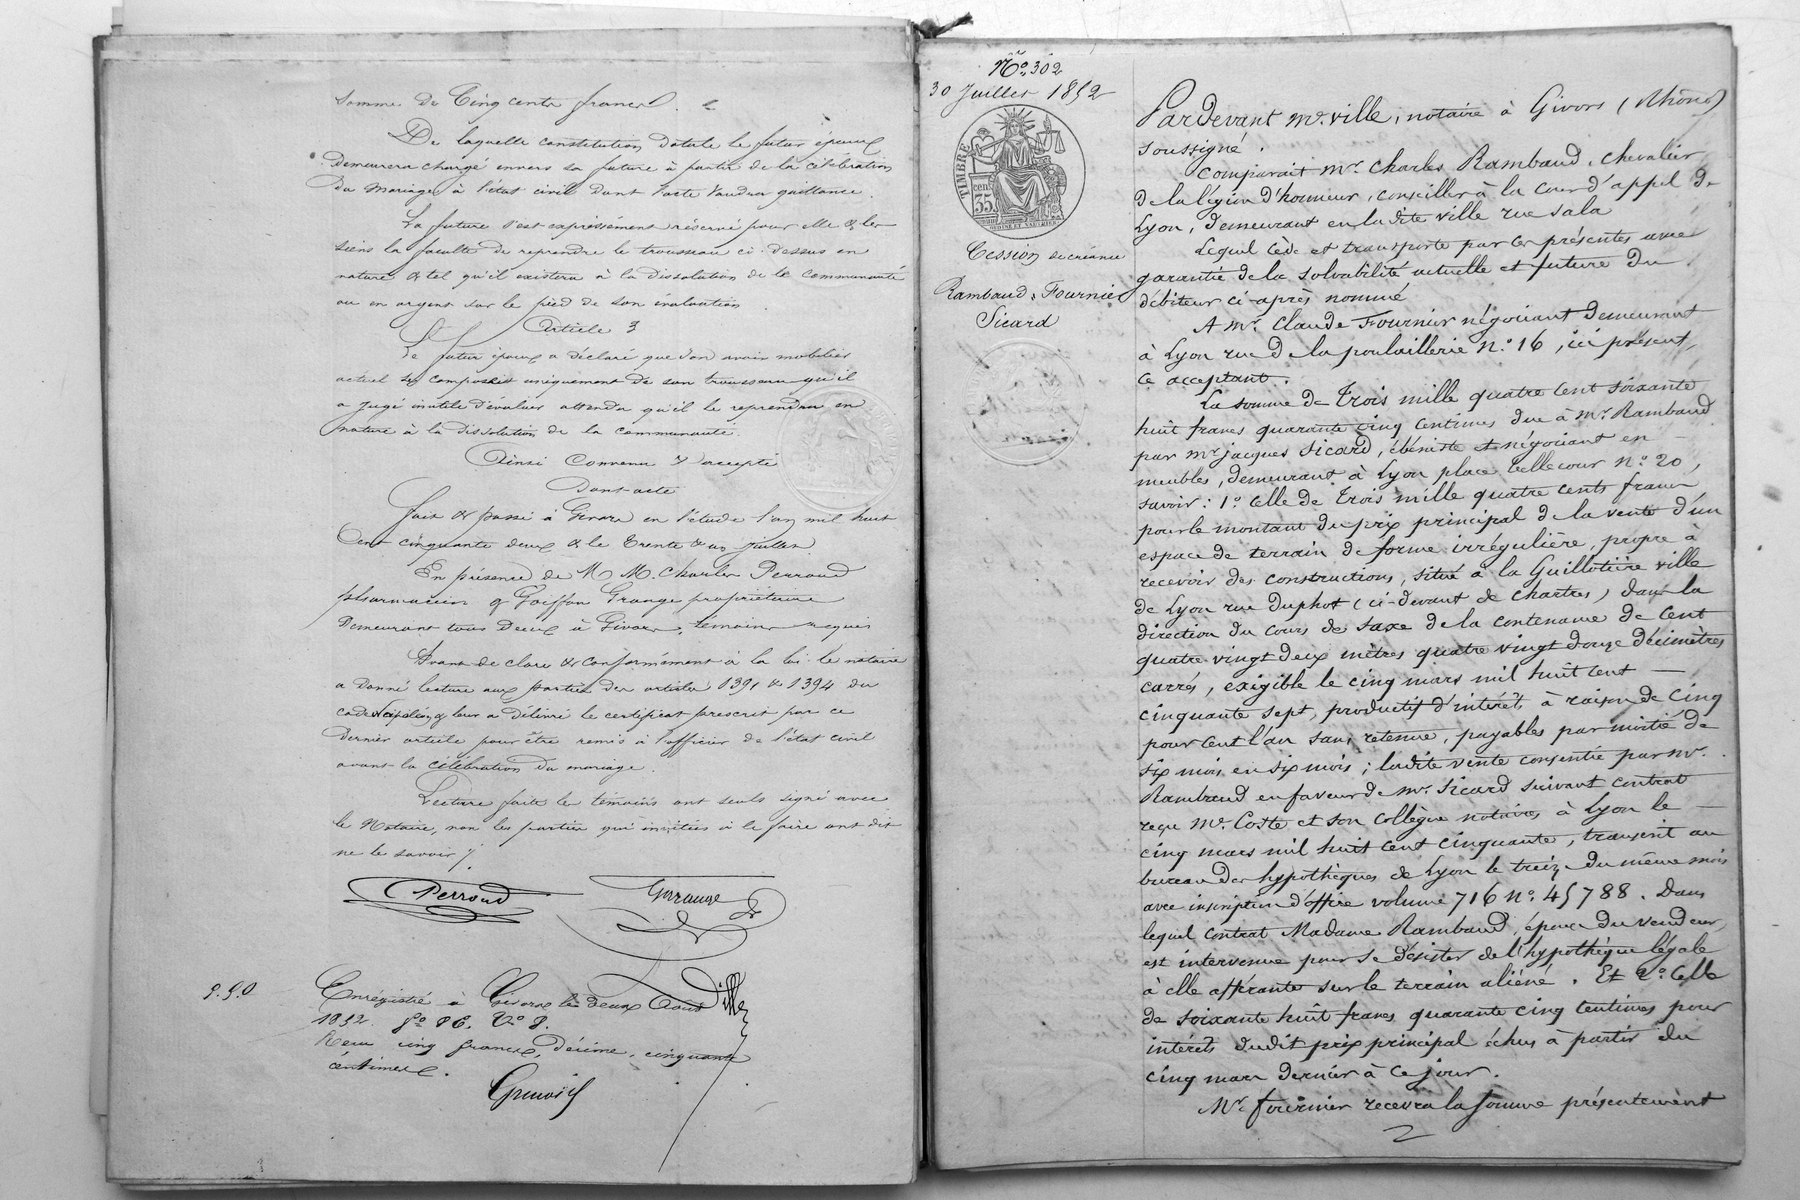 somme de Cinq cents francs.
De laquelle constitution dotale le futur époux
demeurera chargé envers sa future à partir de la célébration
du mariage à l'état civil dont l'acte vaudra quittance.
La future s'est expréssément réservé pour elle & les
siens la faculté de reprendre le trousseau ci-dessus en
nature & tel qu'il existera à la dissolution de la communauté
ou en argent sur le pied de son évaluation
Article 3
Le futur époux a déclaré que son avoir mobilier
actuel se composait uniquement de son trousseau qu'il
a jugé inutile d'évaluer attendu qu'il le reprendra en
nature à la dissolution de la communauté.
Ainsi convenu & accepté
Dont acte
Fait & passé à Givors en l'étude l'an mil huit
cent cinquante deux & le trente & un juillet.
En présence de M. M. Charles Perraud
pharmacien & Goiffon Grange propriétaire
demeurant tous deux à Givors, témoins requis
Avant de clore & conformément à la loi le notaire
a donné lecture aux parties des articles 1391 & 1394 du
code & leur a délivré le certificat prescrit par ce
dernier article pour être remis à l'officier de l'état civil
avant la célébration du mariage.
Lecture faite les témoins ont seuls signé avec
le Notaire, non les parties qui invitées à le faire ont dit
ne le savoir
Perroud
Ville
5.50
Enrégistré à Givors le deux Août
1852. f° 86. V° 8.
Reçu cinq francs, décime, cinquante
centimes.
N° 302
30 Juillet 1852
TIMBRE
cen.
35
Cession de créance
Rambaud à Fournier
Sicard
Pardevant Me. Ville, notaire à Givors (Rhône)
soussigné.
Comparait Mr. Charles Rambaud, chevalier
de la légion d'honneur, conseiller à la cour d'appel de
Lyon, demeurant en la dite ville rue Sala
Lequel cède et transporte par ces présentes avec
garantie de la solvabilité actuelle et future du
débiteur ci-après nommé
A Mr. Claude Fournier négociant demeurant
à Lyon rue de la poulaillerie N°. 16, ici présent,
ce acceptant.
La somme de Trois mille quatre cent soixante
huit francs quarante cinq centimes due à Mr. Rambaud
par Mr. Jacques Sicard, ébéniste et négociant en
meubles, demeurant à Lyon place bellecour N°. 20,
savoir : 1°. Celle de Trois mille quatre cents francs
pour le montant du prix principal de la vente d'un
espace de terrain de forme irrégulière, propre à
recevoir des constructions, situé à la Guillotière ville
de Lyon rue Duphot (ci-devant de Chartres) dans la
direction du cours de Saxe de la contenance de cent
quatre vingt deux mètres quatre vingt douze décimètres
carrés, exigible le cinq mars mil huit cent
cinquante sept, productif d'intérêts à raison de cinq
pour cent l'an sans retenue, payables par moitié de
six mois en six mois ; ladite vente consentie par Mr.
Rambaud en faveur de Mr. Sicard suivant contrat
reçu Me. Coste et son collègue notaires à Lyon le
cinq mars mil huit cent cinquante, transcrit au
bureau des hypothèques de Lyon le treize du même mois
avec inscription d'office volume 716 N°. 45788. Dans
lequel contrat Madame Rambaud, épouse du vendeur,
est intervenue pour se désister de l'hypothèque légale
à elle afférante sur le terrain aliéné. Et 2°. Celle
de soixante huit francs quarante cinq centimes pour
intérêts dudit prix principal échus à partir du
cinq mars dernier à ce jour.
Mr. Fournier recevra la somme présentement